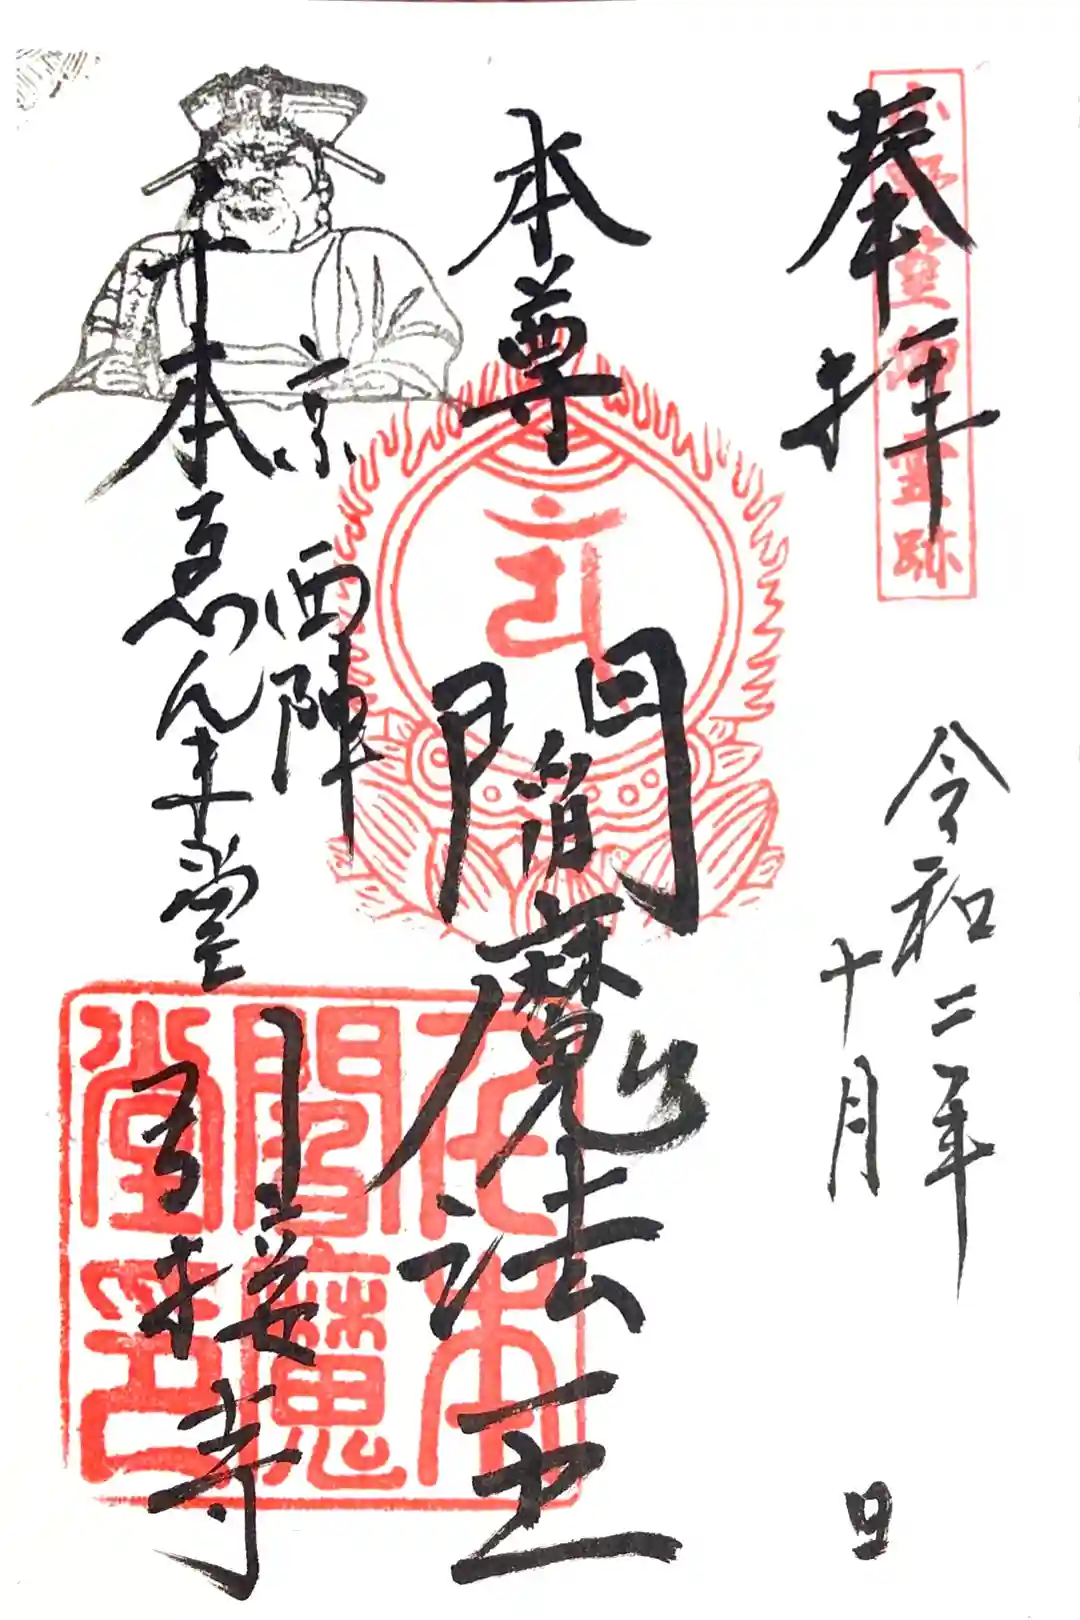 奉拝
小野篁卿霊跡
令和二年
十月
日
本尊
閻魔法王
京西陣
千本ゑんま堂
引接寺
千本
閻魔
堂印